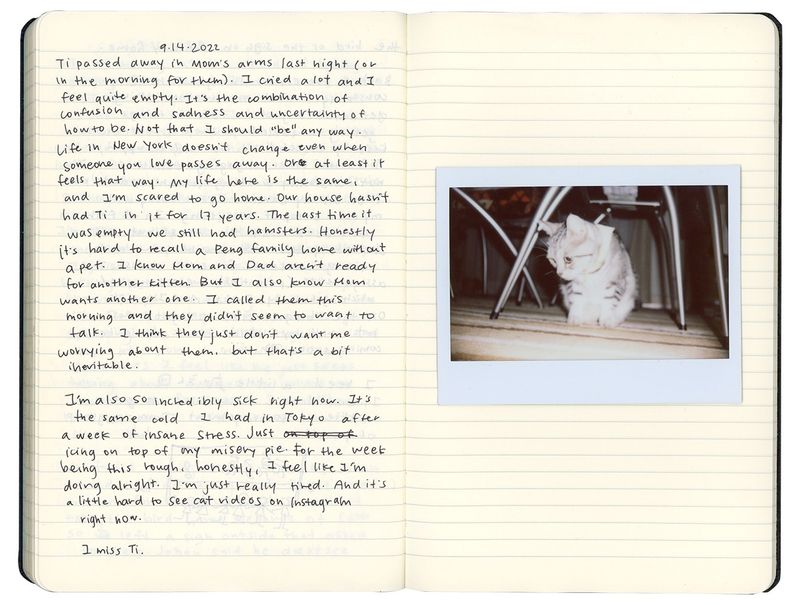 9.14.2022
Ti passed away in Mom's arms last night (or
in the morning for them). I cried a lot and I
feel quite empty. It's the combination of
confusion and sadness and uncertainty of
how to be. Not that I should "be" any way.
Life in New York doesn't change even when
someone you love passes away. Or at least it
feels that way. My life here is the same,
and I'm scared to go home. Our house hasn't
had Ti in it for 17 years. The last time it
was empty we still had hamsters. Honestly
it's hard to recall a Peng family home without
a pet. I know Mom and Dad aren't ready
for another kitten. But I also know Mom
wants another one. I called them this
morning and they didn't seem to want to
talk. I think they just don't want me
worrying about them. but that's a bit
inevitable.
I'm also so incredibly sick right now. It's
the same cold I had in Tokyo after
a week of insane stress. Just on top of
icing on top of my misery pie. For the week
being this rough, honestly, I feel like I'm
doing alright. I'm just really tired. And it's
a little hard to see cat videos on Instagram
right now.
I miss Ti.